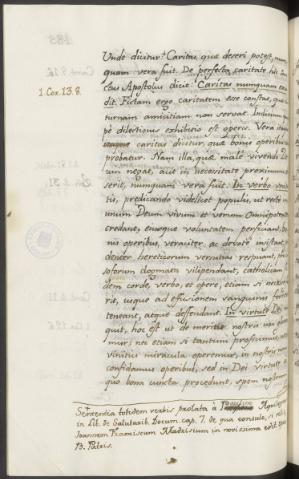 Unde dicitur: Caritas, que deseri potest, num-
quam vera fuit. De perfecta caritate
tus Apostolus dicit: Caritas numquam exci-
1. Cor. 13. 8.
dit. Fictam ergo caritatem esse constat, que
turnam amicitiam non servat.
pe dilectionis exhibitio est operis. Vera
caritas dicitur, que bonis operibus
probatur. Nam illa, quæ male vivendi
um negat, aut in necessitate proximum
serit, numquam vera fuit. In verbo
tis, predicando videlicet populis, ut recte in
unum Deum vivum et verum Omnipotentem
credant, eiusque voluntatem perficiant, bo-
nis operibus, veraciter, ac devote insistant,
denter hereticorum versutias respuant,
soforum dogmata vilipendant, catholicam
dem corde, verbo, et opere, etiam si necesse
rit, usque ad efusionem sanguinis
teneant, atque deffendant. In virtute Dei
quit, hoc est ut de meritis nostris non
mur; nec etiam si tantum proficimus,
vinitus miracula operemur, in nostris
confidamus operibus, sed in Dei virtute,
quo bona cuncta procedunt, spem
Sententia totidem verbis prolata a Paulino Aquilejen
in Lib. de Salutarib. Docum. cap. 7. de qua consule, si
Joannem Franciscum Madrisium in novissima edit.
B. Patris.